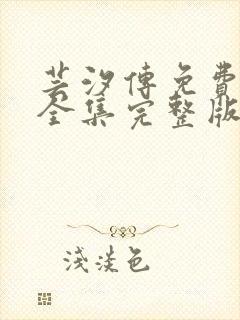 芸汐傳免費
全集完整版
淺淡色